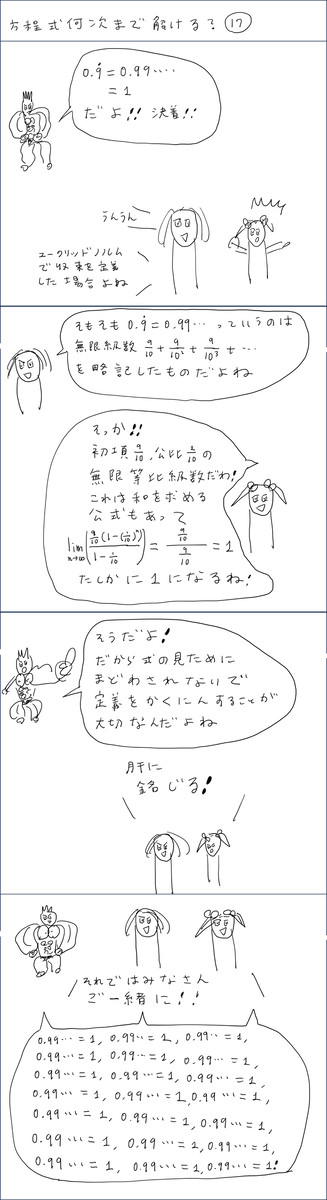 方程式何次まで解ける？⑰
0.9̇ = 0.99‥‥
= 1
だよ!! 決着!!
うんうん
ユークリッドノルム
で収束を定義
した場合よね
そもそも 0.9̇ = 0.99… っていうのは
無限級数 9/10 + 9/10² + 9/10³ + …
を略記したものだよね
そっか!!
初項 9/10, 公比 1/10 の
無限等比級数だわ!
これは和を求める
公式もあって
lim n→∞ (9/10(1-(1/10)ⁿ))/(1-1/10) = (9/10)/(9/10) = 1
たしかに1になるね!
そうだよ!
だから式の見ために
まどわされないで
定義をかくにんすることが
大切なんだよね
肝に
銘じる!
それではみなさん
ご一緒に!!
0.99… = 1, 0.99… = 1, 0.99… = 1,
0.99… = 1, 0.99… = 1, 0.99… = 1,
0.99… = 1, 0.99… = 1, 0.99… = 1,
0.99… = 1, 0.99… = 1, 0.99… = 1,
0.99… = 1, 0.99… = 1, 0.99… = 1,
0.99… = 1, 0.99… = 1, 0.99… = 1,
0.99… = 1, 0.99… = 1, 0.99… = 1!